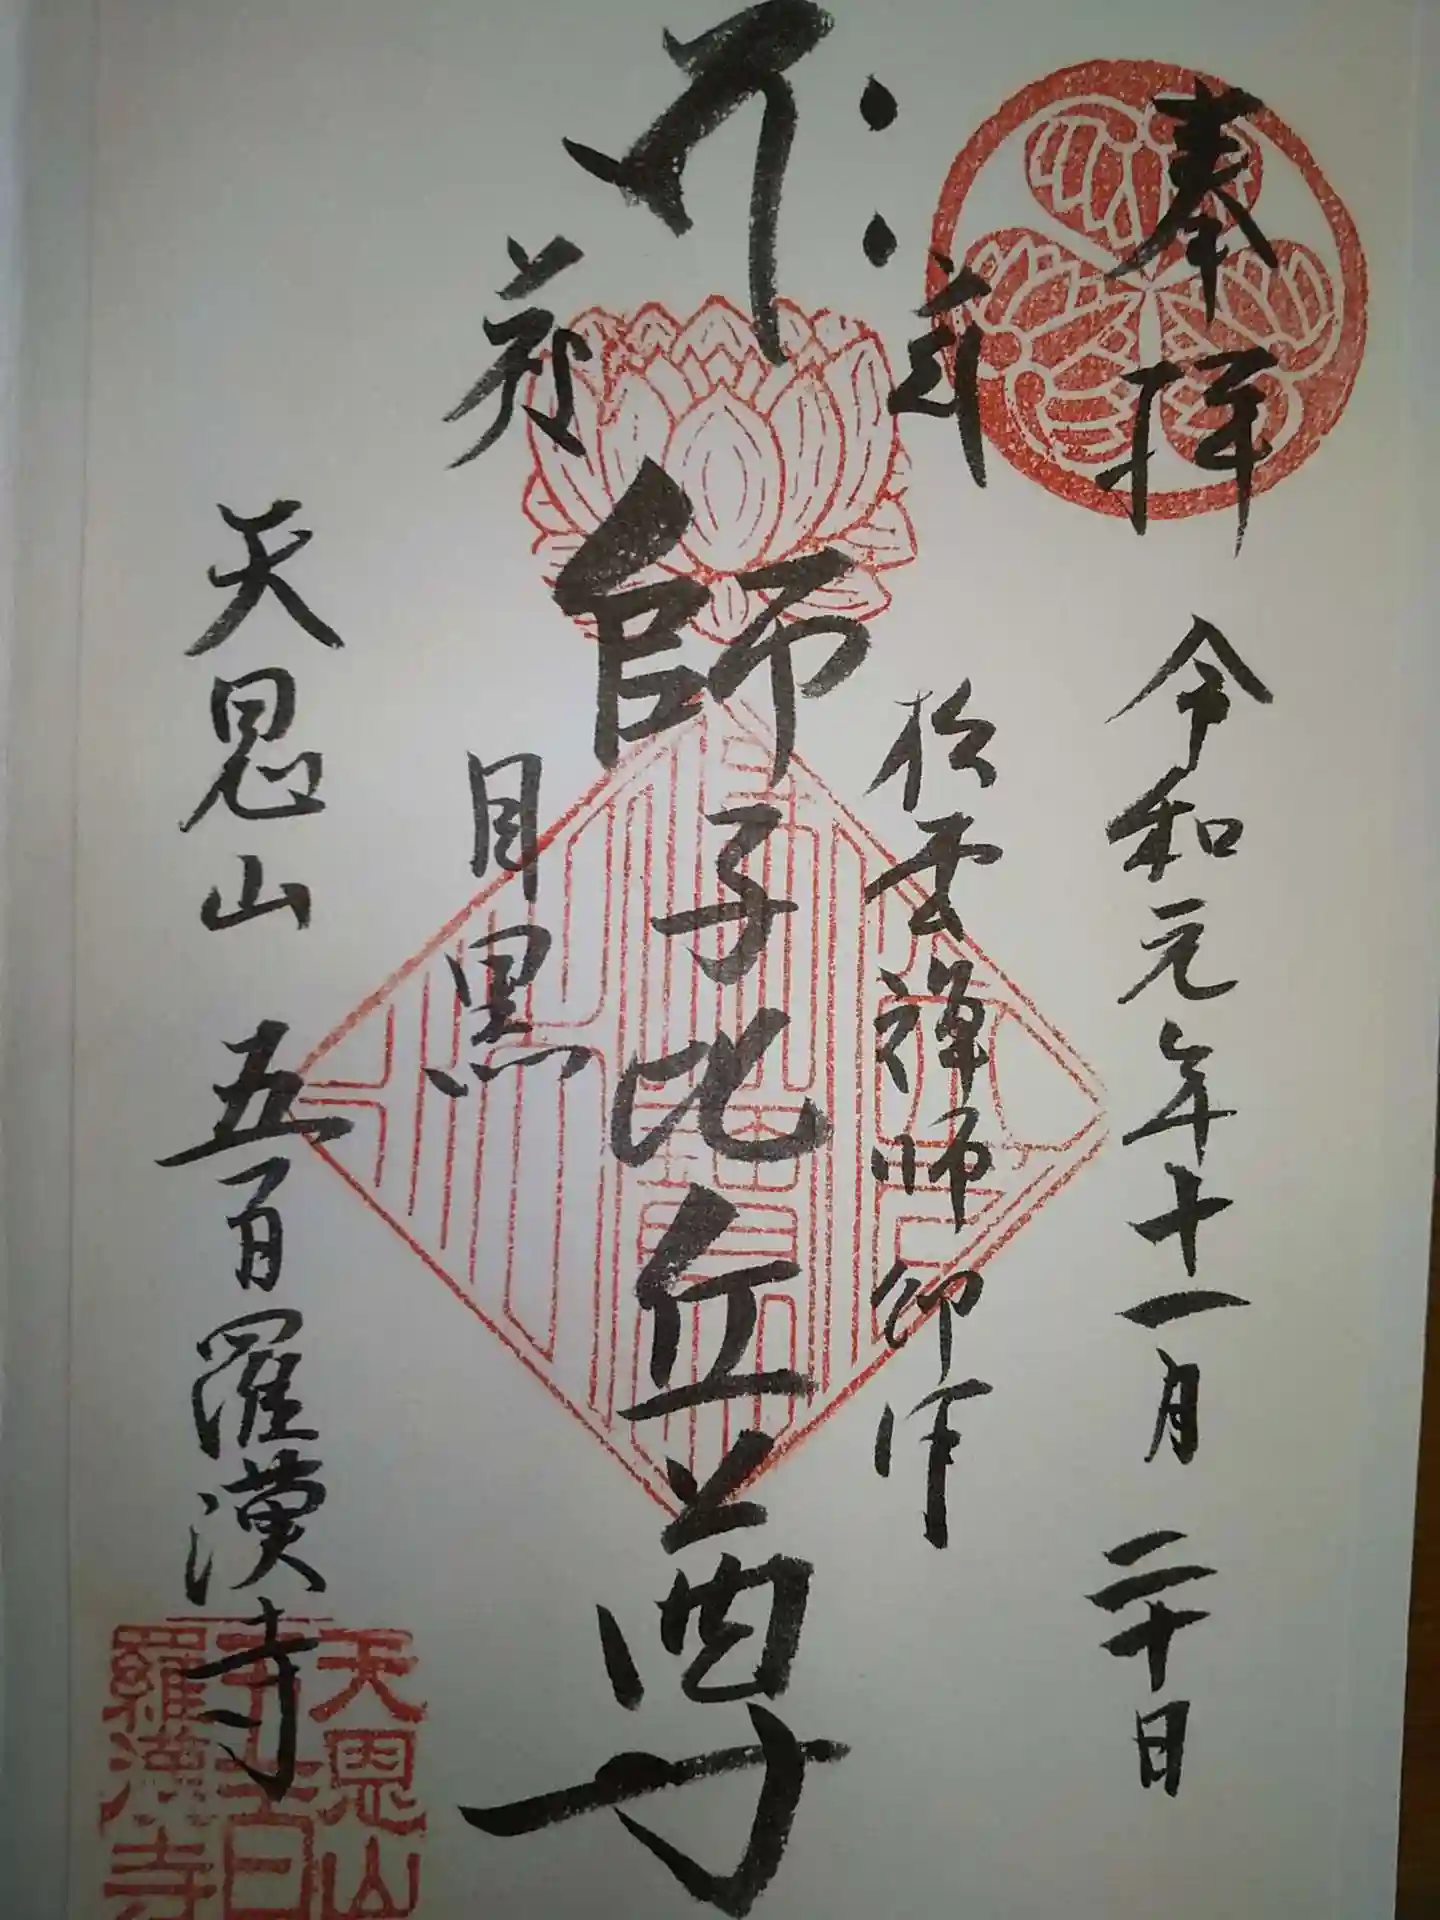 奉拝
令和元年十一月二十日
松雲禅師 御作
師子比丘尊
目黒
天恩山 五百羅漢寺
天恩山
五百
羅漢寺